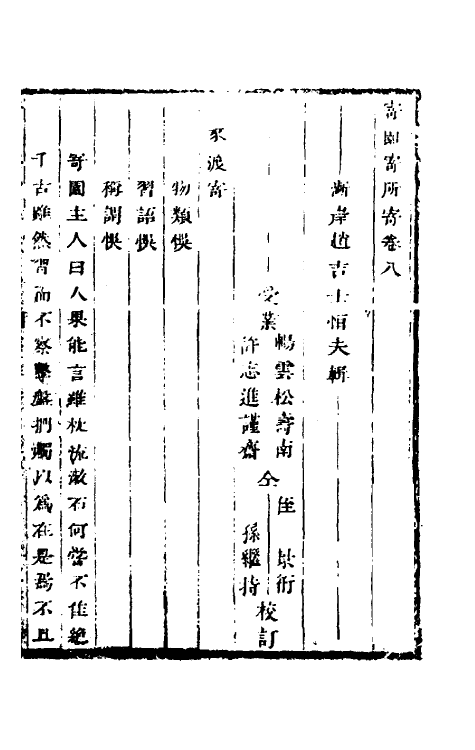 寄園寄所寄卷八
漸岸趙吉士恒夫輯
受業
暢雲松壽南
許志進謹齋
仝
侄 景衍
孫繼持
校訂
豕渡寄
物類悞
習語悞
稱謂悞
寄園主人曰人果能言雖枕流漱石何嘗不佳絶
千古雖然習而不察擊盤捫燭以爲在是焉不且